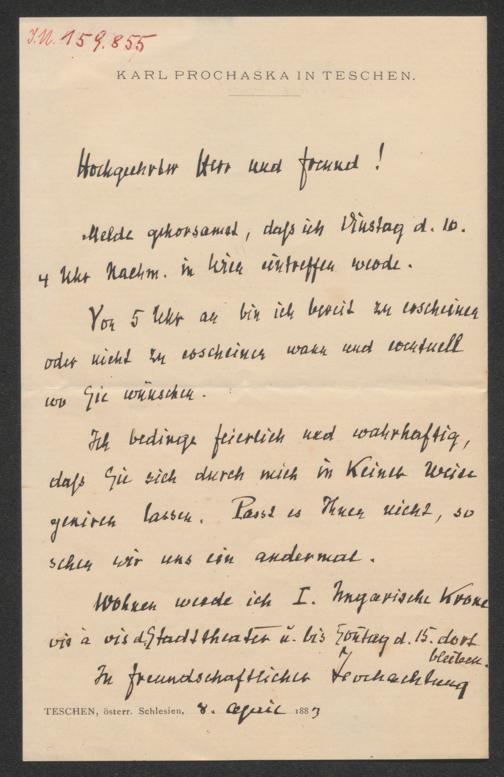 I.N. 159.855
KARL PROCHASKA IN TESCHEN.
Hochgeehrter Herr und Freund!
Melde gehorsamst, daß ich Dinstag d. 10.
4 Uhr Nachm. in Wien eintreffen werde.
Von 5 Uhr an bin ich bereit zu erscheinen
oder nicht zu erscheinen wann und eventuell
wo Sie wünschen.
Ich bedinge feierlich und wahrhaftig,
daß Sie sich durch mich in Keiner Weise
geniren lassen. Passt es Ihnen nicht, so
sehen wir uns ein andermal.
Wohnen werde ich I. Ungarische Krone
vis à vis d Stadttheater u. bis Sontag d. 15. dort
bleiben.
In freundschaftlicher Hochachtung
TESCHEN, österr. Schlesien, 8. April 1883